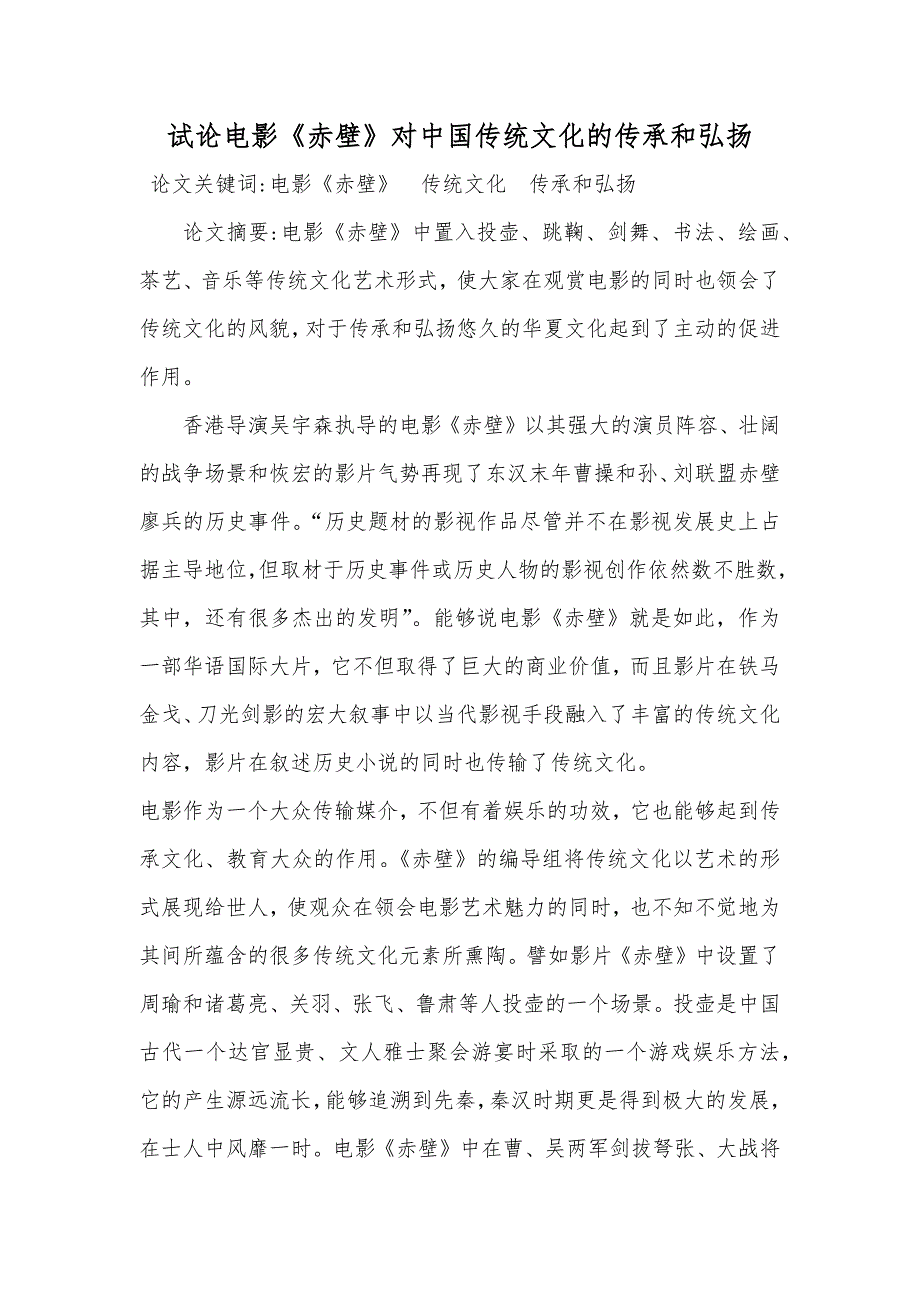 试论电影《赤壁》对中国传统文化的传承和弘扬
论文关键词:电影《赤壁》 传统文化 传承和弘扬
论文摘要:电影《赤壁》中置入投壶、跳鞠、剑舞、书法、绘画、
茶艺、音乐等传统文化艺术形式，使大家在观赏电影的同时也领会了
传统文化的风貌，对于传承和弘扬悠久的华夏文化起到了主动的促进
作用。
香港导演吴宇森执导的电影《赤壁》以其强大的演员阵容、壮阔
的战争场景和恢宏的影片气势再现了东汉末年曹操和孙、刘联盟赤壁
廖兵的历史事件。“历史题材的影视作品尽管并不在影视发展史上占
据主导地位，但取材于历史事件或历史人物的影视创作依然数不胜数，
其中，还有很多杰出的发明”。能够说电影《赤壁》就是如此，作为
一部华语国际大片，它不但取得了巨大的商业价值，而且影片在铁马
金戈、刀光剑影的宏大叙事中以当代影视手段融入了丰富的传统文化
内容，影片在叙述历史小说的同时也传输了传统文化。
电影作为一个大众传输媒介，不但有着娱乐的功效，它也能够起到传
承文化、教育大众的作用。《赤壁》的编导组将传统文化以艺术的形
式展现给世人，使观众在领会电影艺术魅力的同时，也不知不觉地为
其间所蕴含的很多传统文化元素所熏陶。譬如影片《赤壁》中设置了
周瑜和诸葛亮、关羽、张飞、鲁肃等人投壶的一个场景。投壶是中国
古代一个达官显贵、文人雅士聚会游宴时采取的一个游戏娱乐方法，
它的产生源远流长，能够追溯到先秦，秦汉时期更是得到极大的发展，
在士人中风靡一时。电影《赤壁》中在曹、吴两军剑拔弩张、大战将